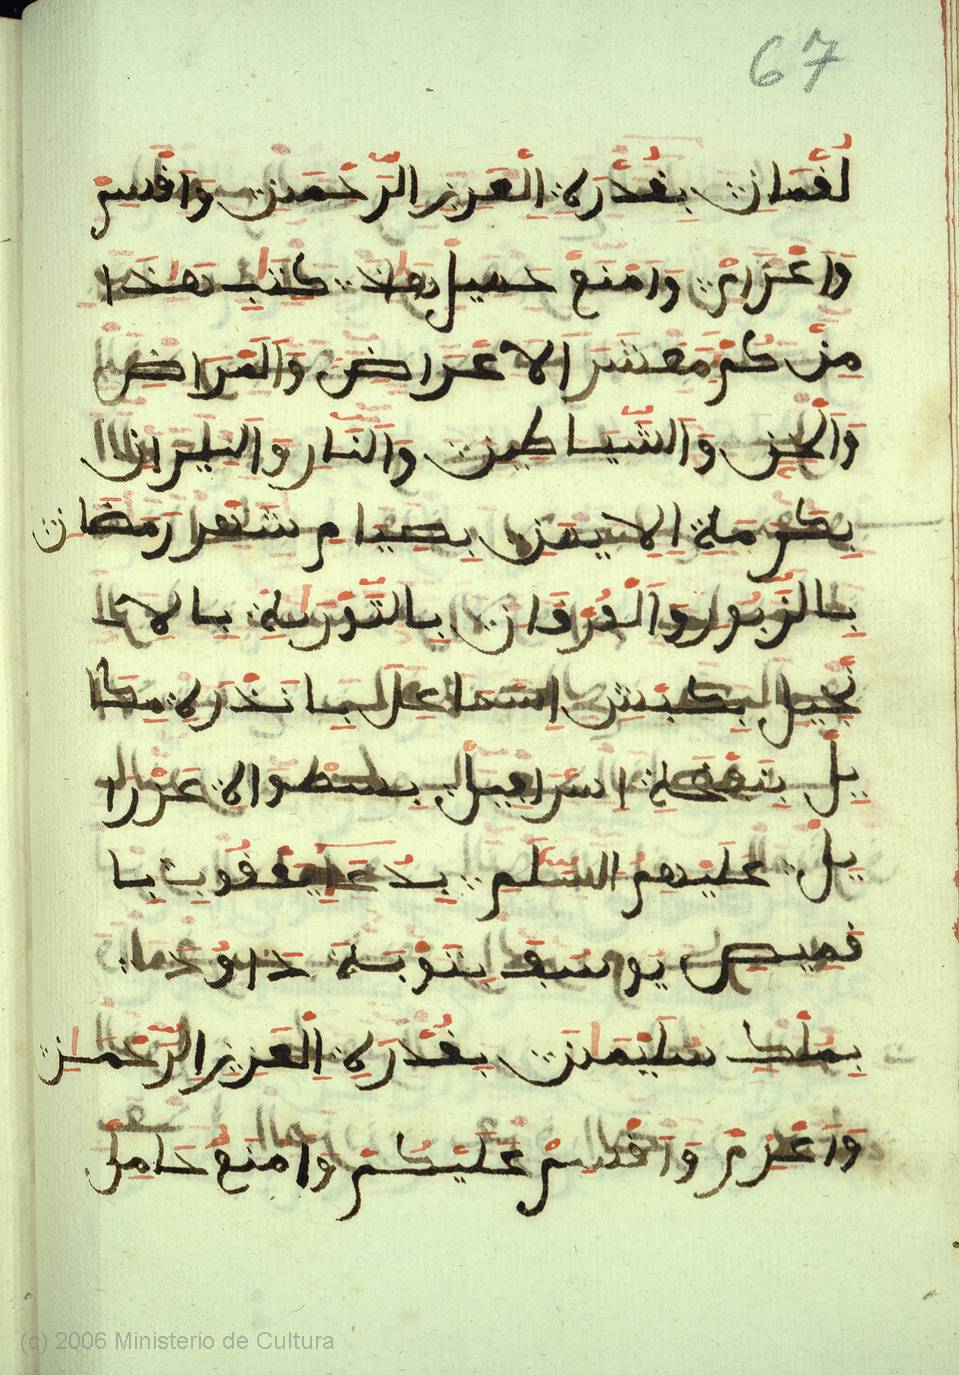 67
لقمان بقدرة العزيز الرحمن واقسم
واعزام وامنع حميل هذا كتب هذا
من كم معشر الاعراض والمراض
والجن والشياطين والنار والنيران
بكرمة الايمن بصيام شهر رمضان
بالزبور والفرقان بالتورية بالا
نجيل بكبش اسماعل بانذرة مكا
يل بنفخة اسرافيل بسطوة عزرا
يل عليهم السلم بدعا يعقوب با
قميص يوسف بتوبة داوود
بملك سليمن بقدرة العزيز الرحمن
واعزم واقسم عليكم وامنع حامل
(c) 2006 Ministerio de Cultura